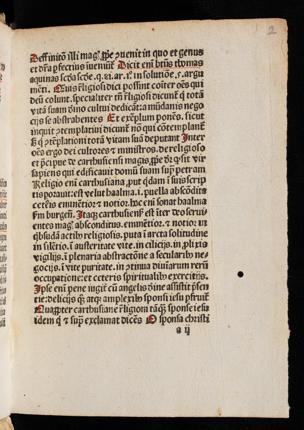 2
Deffinitō illi magꝭ ꝓpe ꝯuenit in quo et genus
et dr̄a ꝑfectius īuenit̄ Dicit eni bt̄us thomas
aquinas scd̄a scd̄e. q. 81. ar. 1. in solutiōe .5. argu
mēti. Quis religiosi dici possint cōiter oēs qui
deū colunt. specialiter tn̄ religiosi dicunt̄ q totā
vitā suam diuino cultui dedicāt: a mūdanis nego
cijs se abstrahentes Et exēplum ponēs. sicut
inquit ꝯtemplatiui dicunt̄ nō qui cōtemplant̄
sꝫ q ꝯtēplationi totā vitam suā deputant Inter
oēs ergo dei cultores ⁊ ministros. de religioso
et p̄cipue de cartusiensi magis ꝓpe dr̄ qꝫ sit vir
sapiens qui edificauit domū suam sup̄ petram
Religio eni cartusiana put qdam
ritis posteaut: est velut baalma. i. puella abscōdita
eētens eminētior ⁊ notior. we eni sonat baalma
sm burgeñ. Itaqꝫ cartusiensꝭ est iter deo serui
entes magꝭ absconditus. eminētior. ⁊ notior.
qbusdā actib religiosis. puta ī arcta solitudine
in silētio. ī austeritate vite. in cilicijs. in ꝓlixis
vigilijs. ī plenaria abstractōne a secularib ne-
gocijs. ī vite puritate. in ꝯtinua diuinarum rerū
occupatione: et ceteris spiritualib exercitijs.
Ipse eni pene iugit̄ cū angelis diuine assistit p̄sen
tie: delicijs qꝫ atqꝫ amplexib sponsi iesu pfruit̄
Quapter cartusiane religiom tāqꝫ sponse iesu
idem q ⁊ sup̄ exclamat dicēs O sponsa christi
a ij